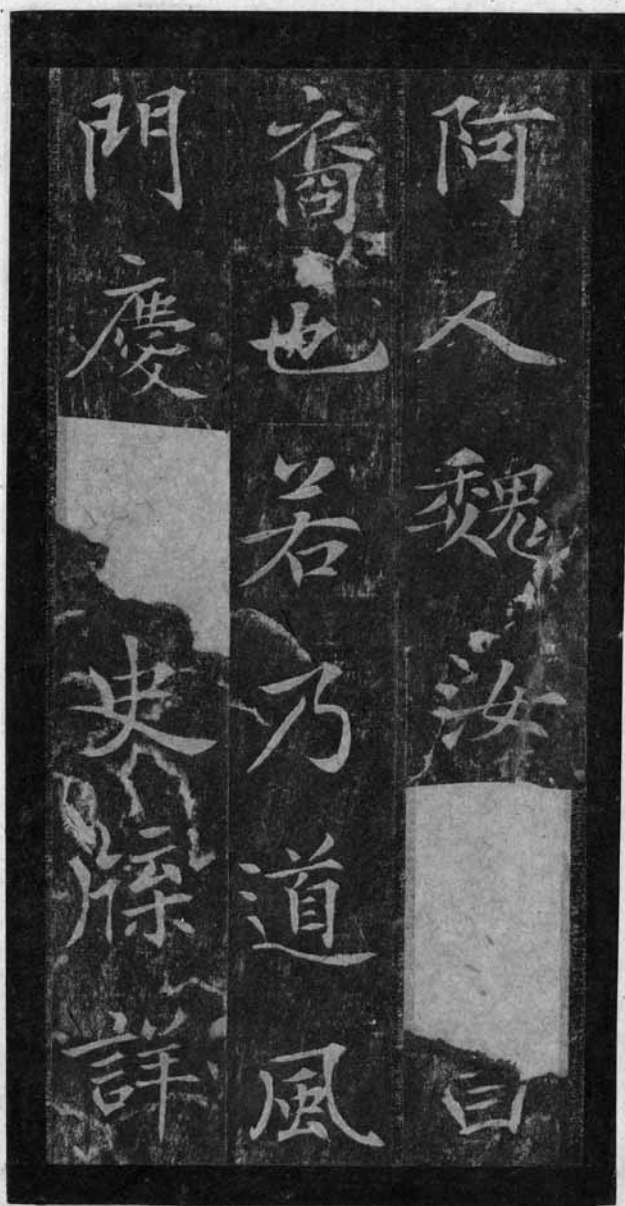 阿人魏汝
裔也若乃道風
門慶史牒詳